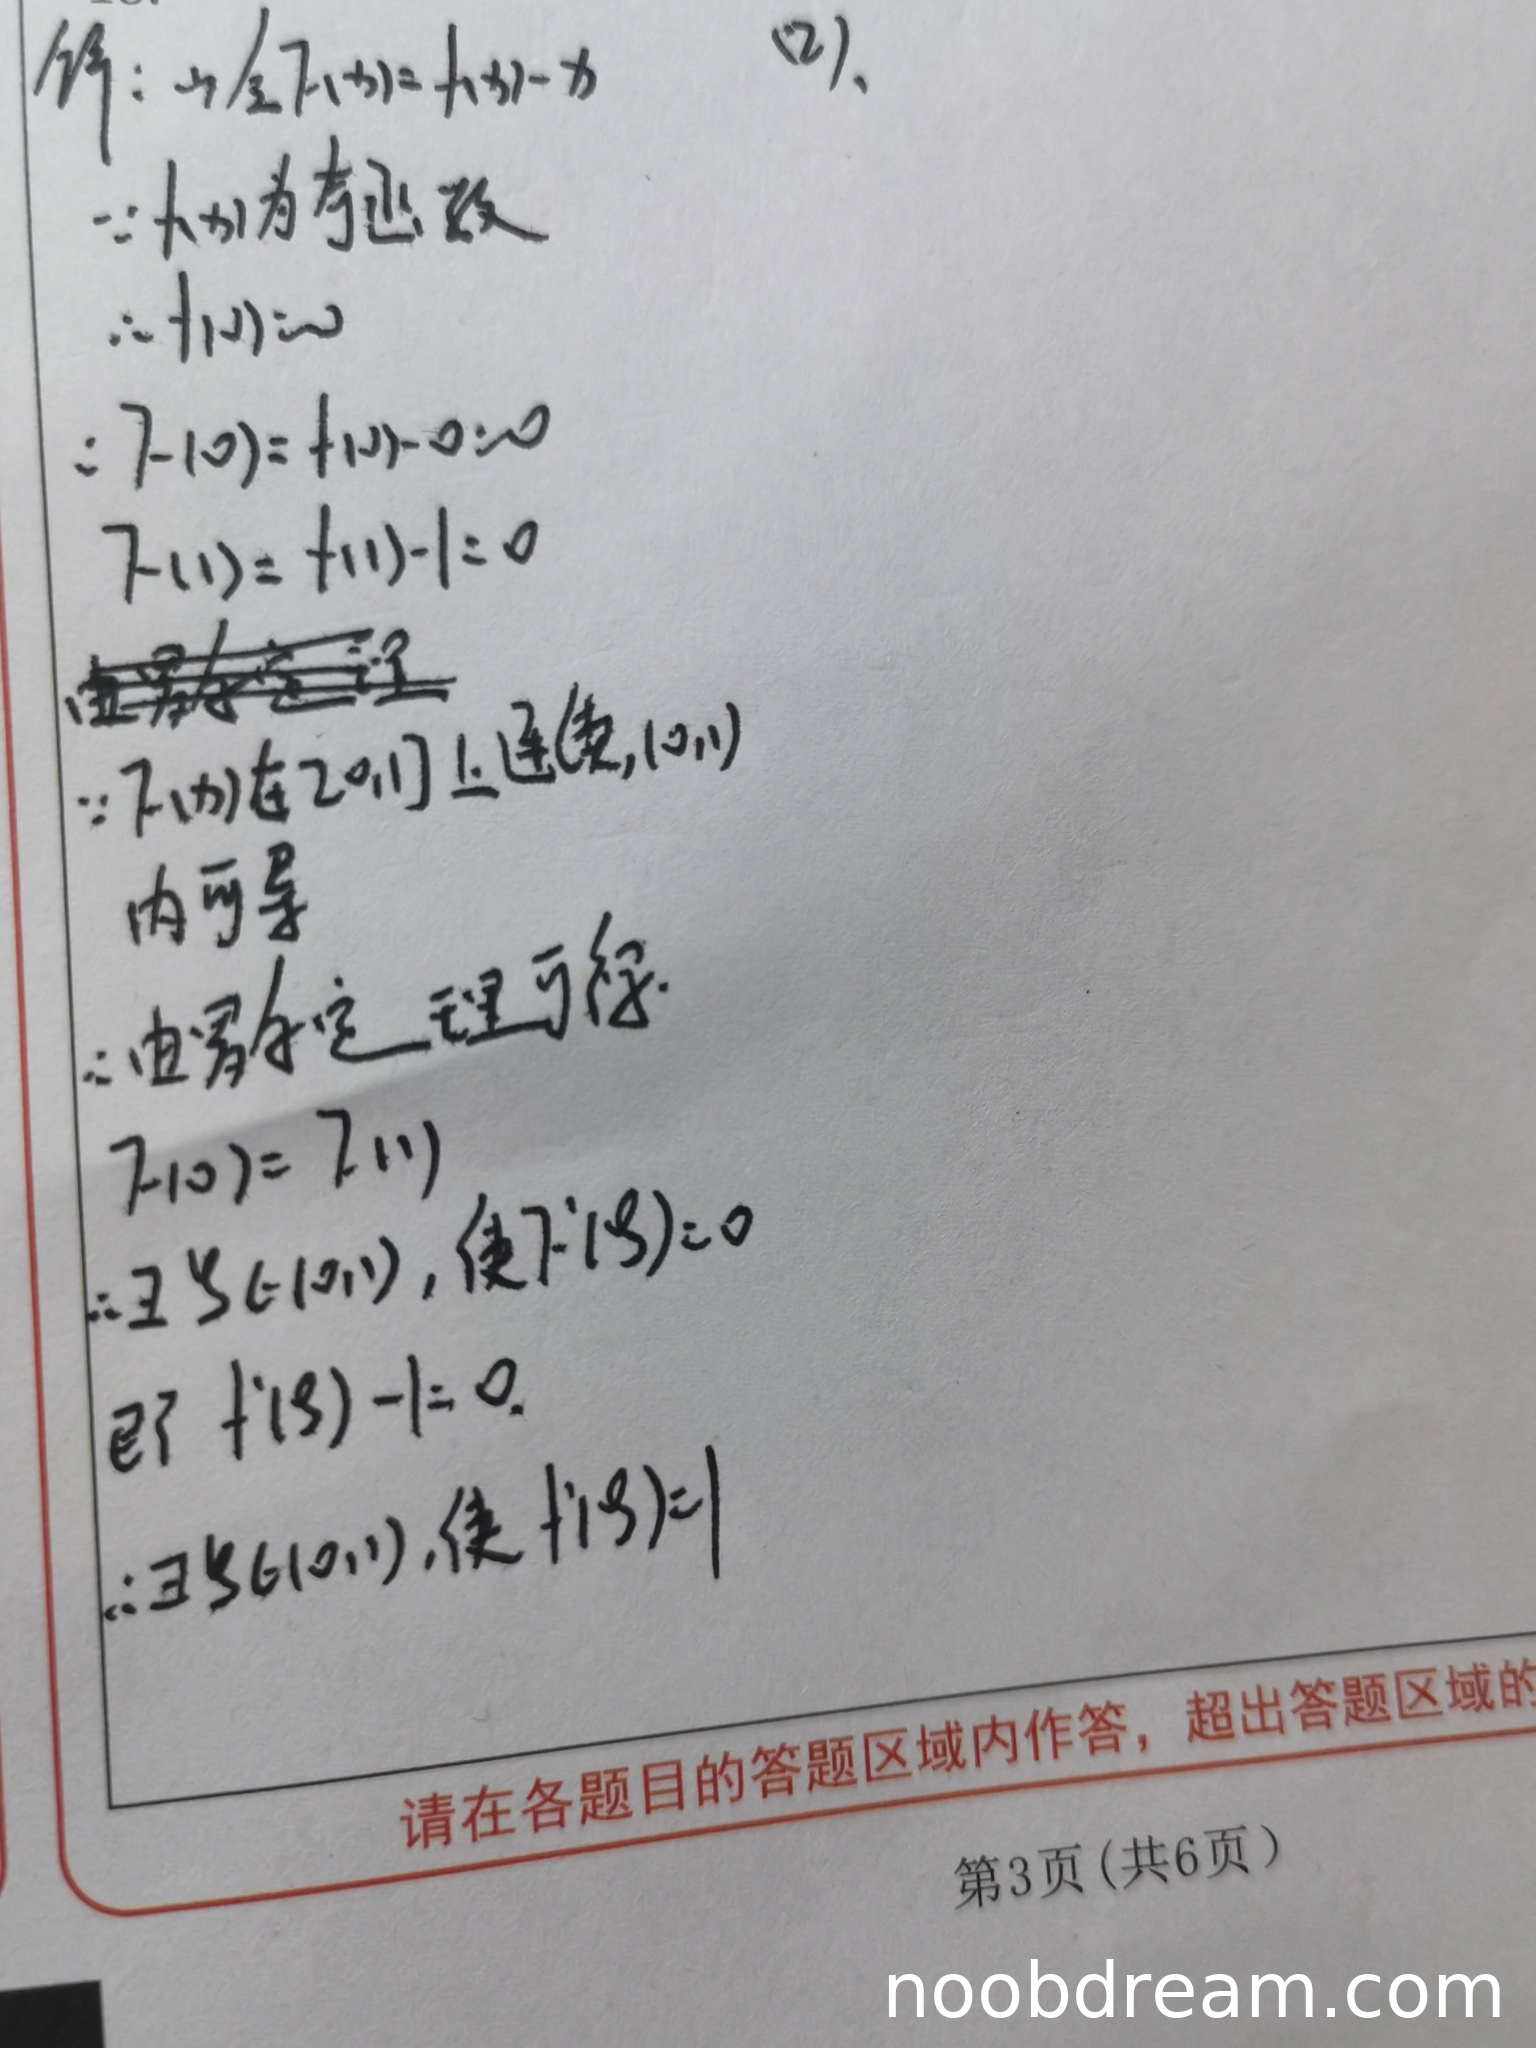 解：(1)令F(x)=f(x)-x
∵f(x)为奇函数
∴f(0)=0
∴F(0)=f(0)-0=0
F(1)=f(1)-1=0
由罗尔定理
∵F(x)在[0,1]上连续,(0,1)
内可导
∴由罗尔定理可得.
F(0)=F(1)
∴∃ξ∈(0,1),使F'(ξ)=0
即 f'(ξ)-1=0.
∴∃ξ∈(0,1),使f'(ξ)=1
(2)、
请在各题目的答题区域内作答，超出答题区域的
第3页(共6页)
noobdream.com